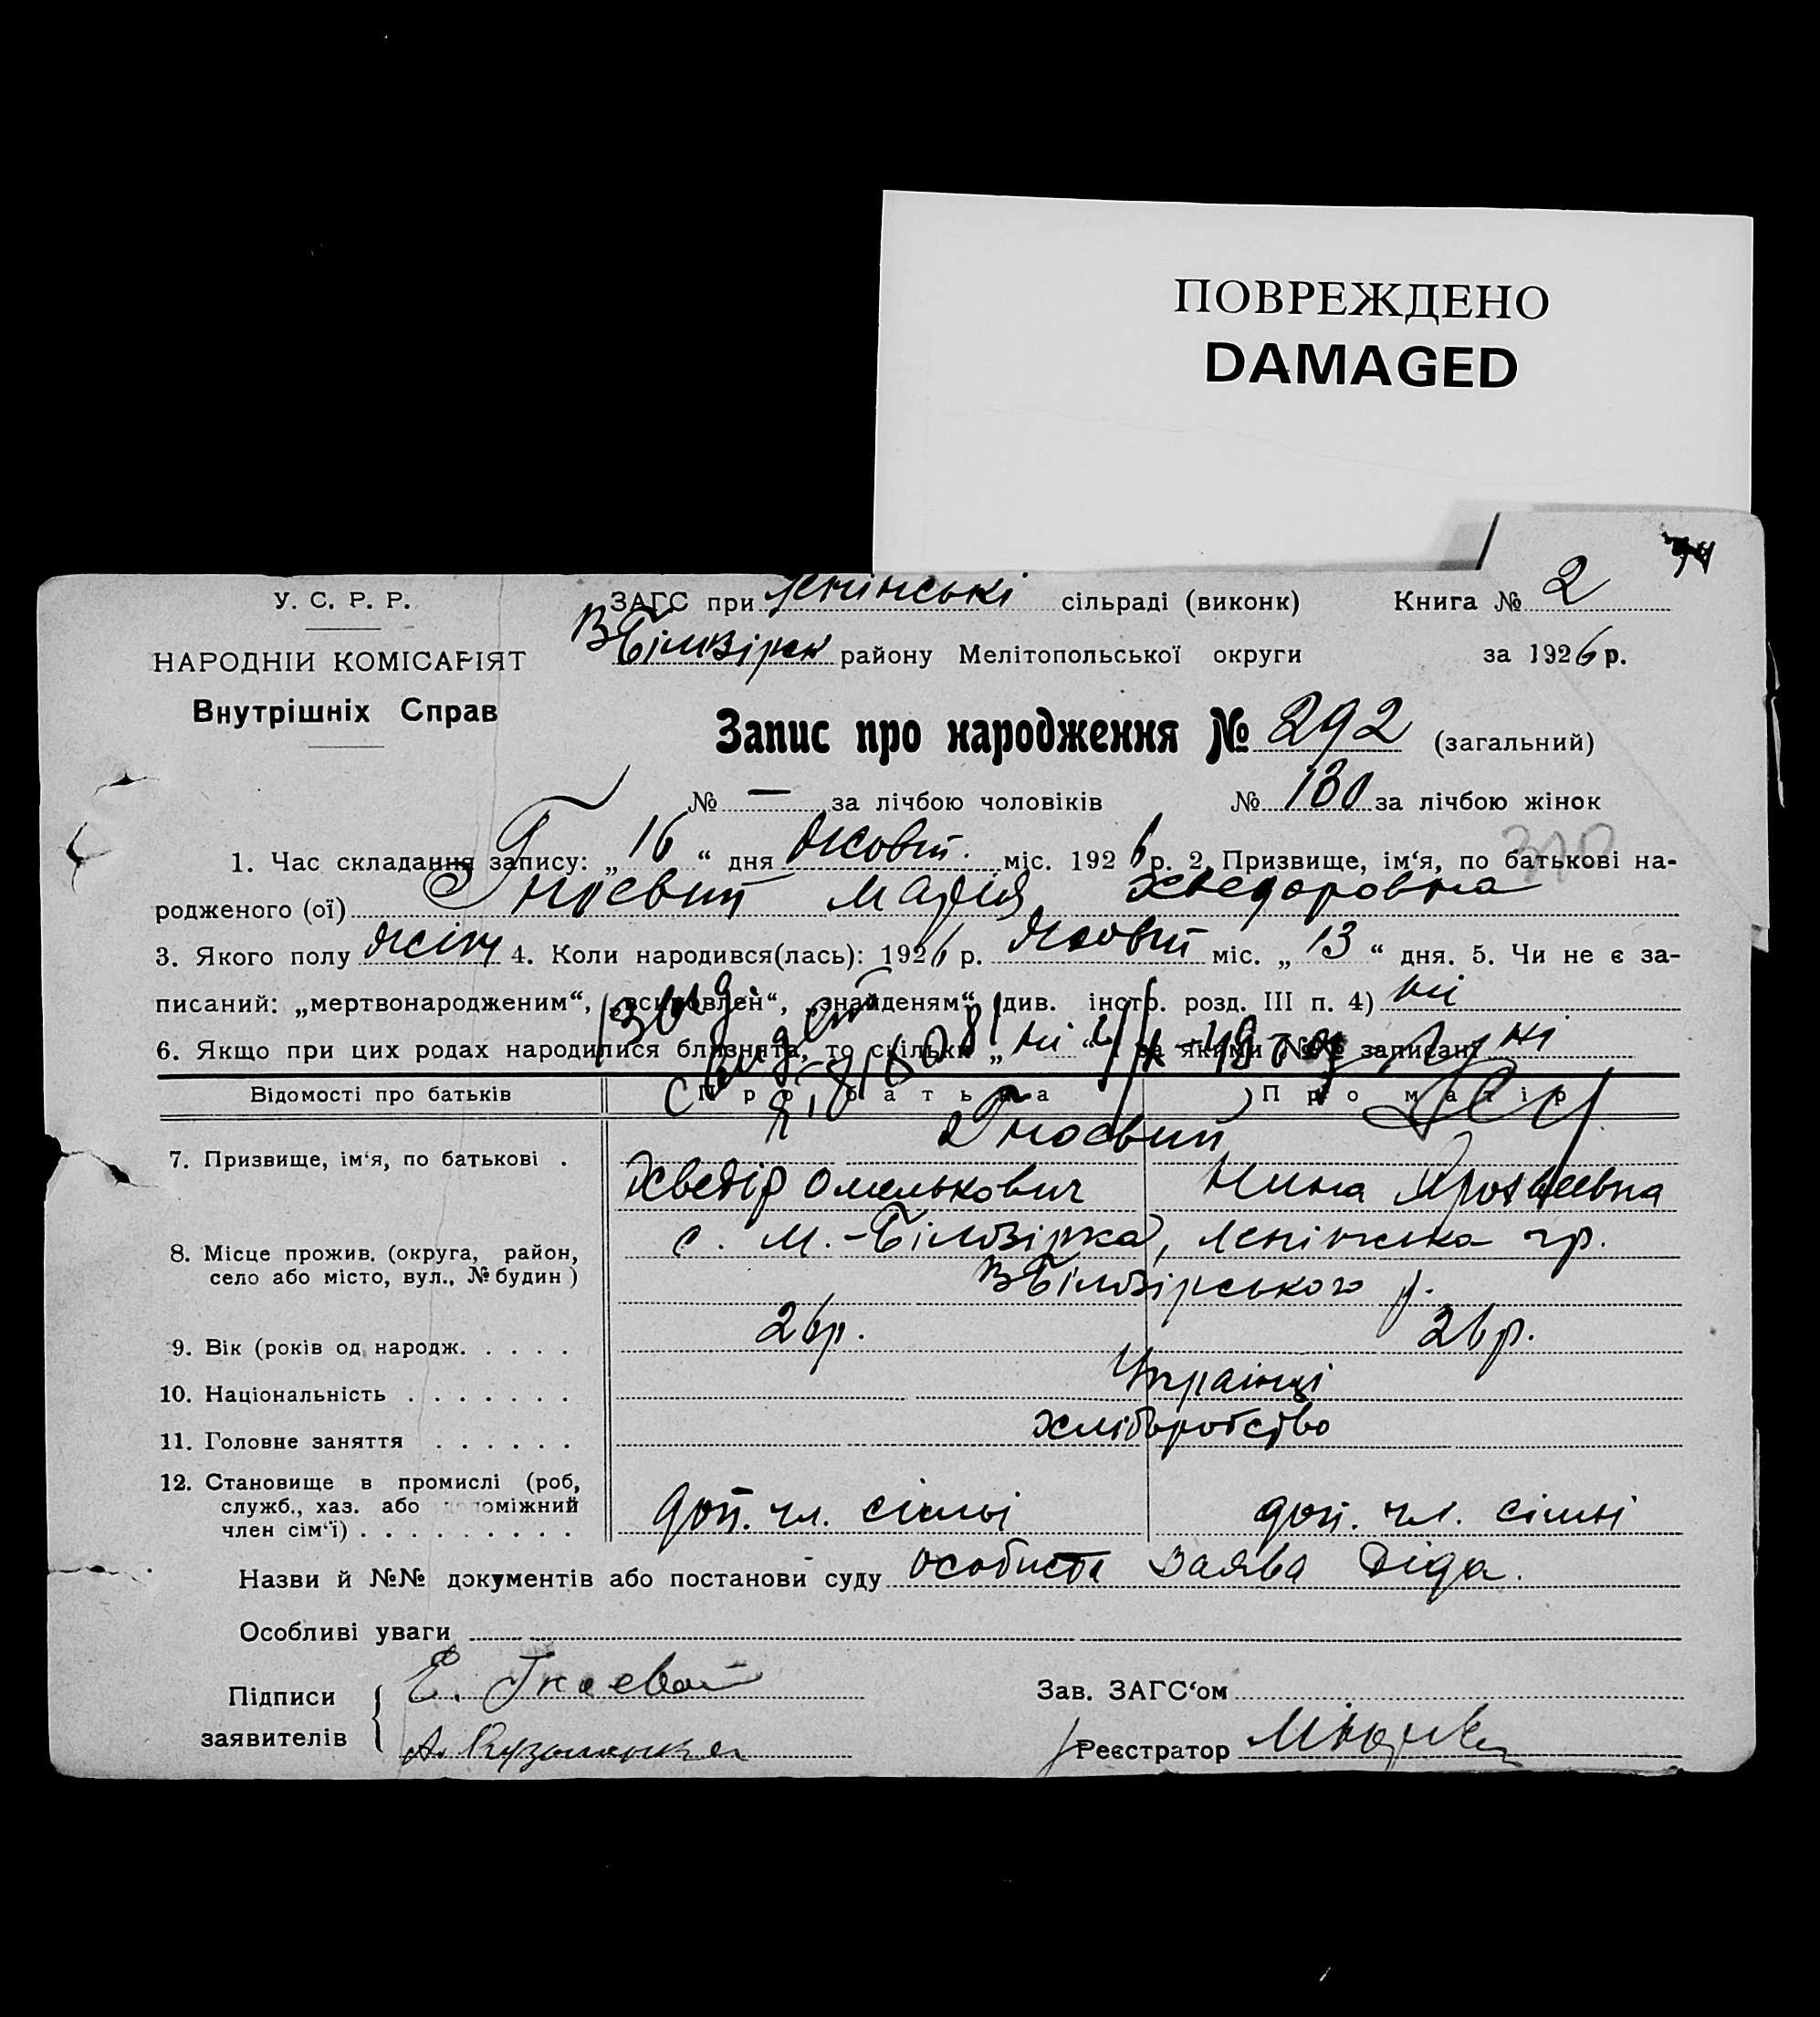 ПОВРЕЖДЕНО
DAMAGED
У. С. Р. Р.
ЗАГС при Ленінські сільраді (виконк) Книга № 2
НАРОДНІЙ КОМІСАРІЯТ
ВБілозірск району Мелітопольської округи за 1926 р.
Внутрішніх Справ
Запис про народження № 292 (загальний)
№ — за лічбою чоловіків № 130 за лічбою жінок
310
1. Час складання запису: „16“ дня жовт. міс. 1926 р. 2. Призвище, ім‘я, по батькові на-
родженого (ої) Гноєвий Марія Хведоровна
3. Якого полу жін 4. Коли народився(лась): 1926 р. жовт міс. „13“ дня. 5. Чи не є за-
писаний: „мертвонародженим“, „всиновлен“, „знайденям“ (див. інстр. розд. III п. 4) ні
6. Якщо при цих родах народилися близнята, то скільки „ні“ і за якими №№ записані ні
Відомості про батьків Про батька Про матір
7. Призвище, ім‘я, по батькові . Гноєвий
Хведір Омелькович Нина
8. Місце прожив. (округа, район, село або місто, вул., № будин) с. М.-Білозірка, Ленінська гр.
ВБілозірського р.
9. Вік (років од народж. . . . . 26 р. 26 р.
10. Національність . . . . . . . Українці
11. Головне заняття . . . . . . хліборобство
12. Становище в промислі (роб,
служб., хаз. або допоміжний
член сім‘ї) . . . . . . . . . доп. чл. сімьї доп. чл. сімьї
Назви й №№ документів або постанови суду особиста заява діда.
Особливі уваги
Підписи заявителів Е. Гноевой Зав. ЗАГС‘ом
А. Кузьменко Реєстратор